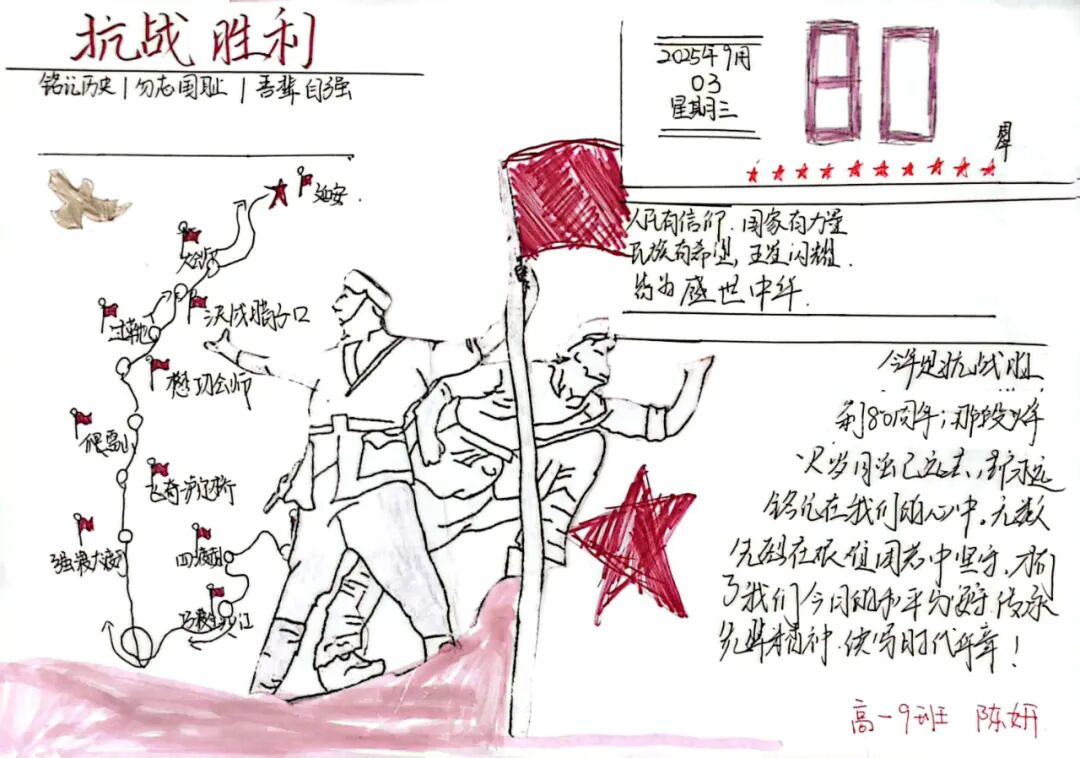 抗战胜利
铭记历史 | 勿忘国耻 | 吾辈自强
2025年9月
03
星期三
80
周年
人民有信仰,国家有力量
民族有希望,五星闪耀
皆为盛世中华.
延安
大会师
过草地
决战腊子口
懋功会师
爬雪山
飞夺泸定桥
强渡大渡河
四渡赤水
巧渡金沙江
今年是抗战胜
利80周年;那段烽
火岁月虽已远去,却永远
铭记在我们的心中。无数
先烈在艰难困苦中坚守,才有
了我们今日的和平安宁.传承
先辈精神,续写时代华章!
高一9班 陈妍